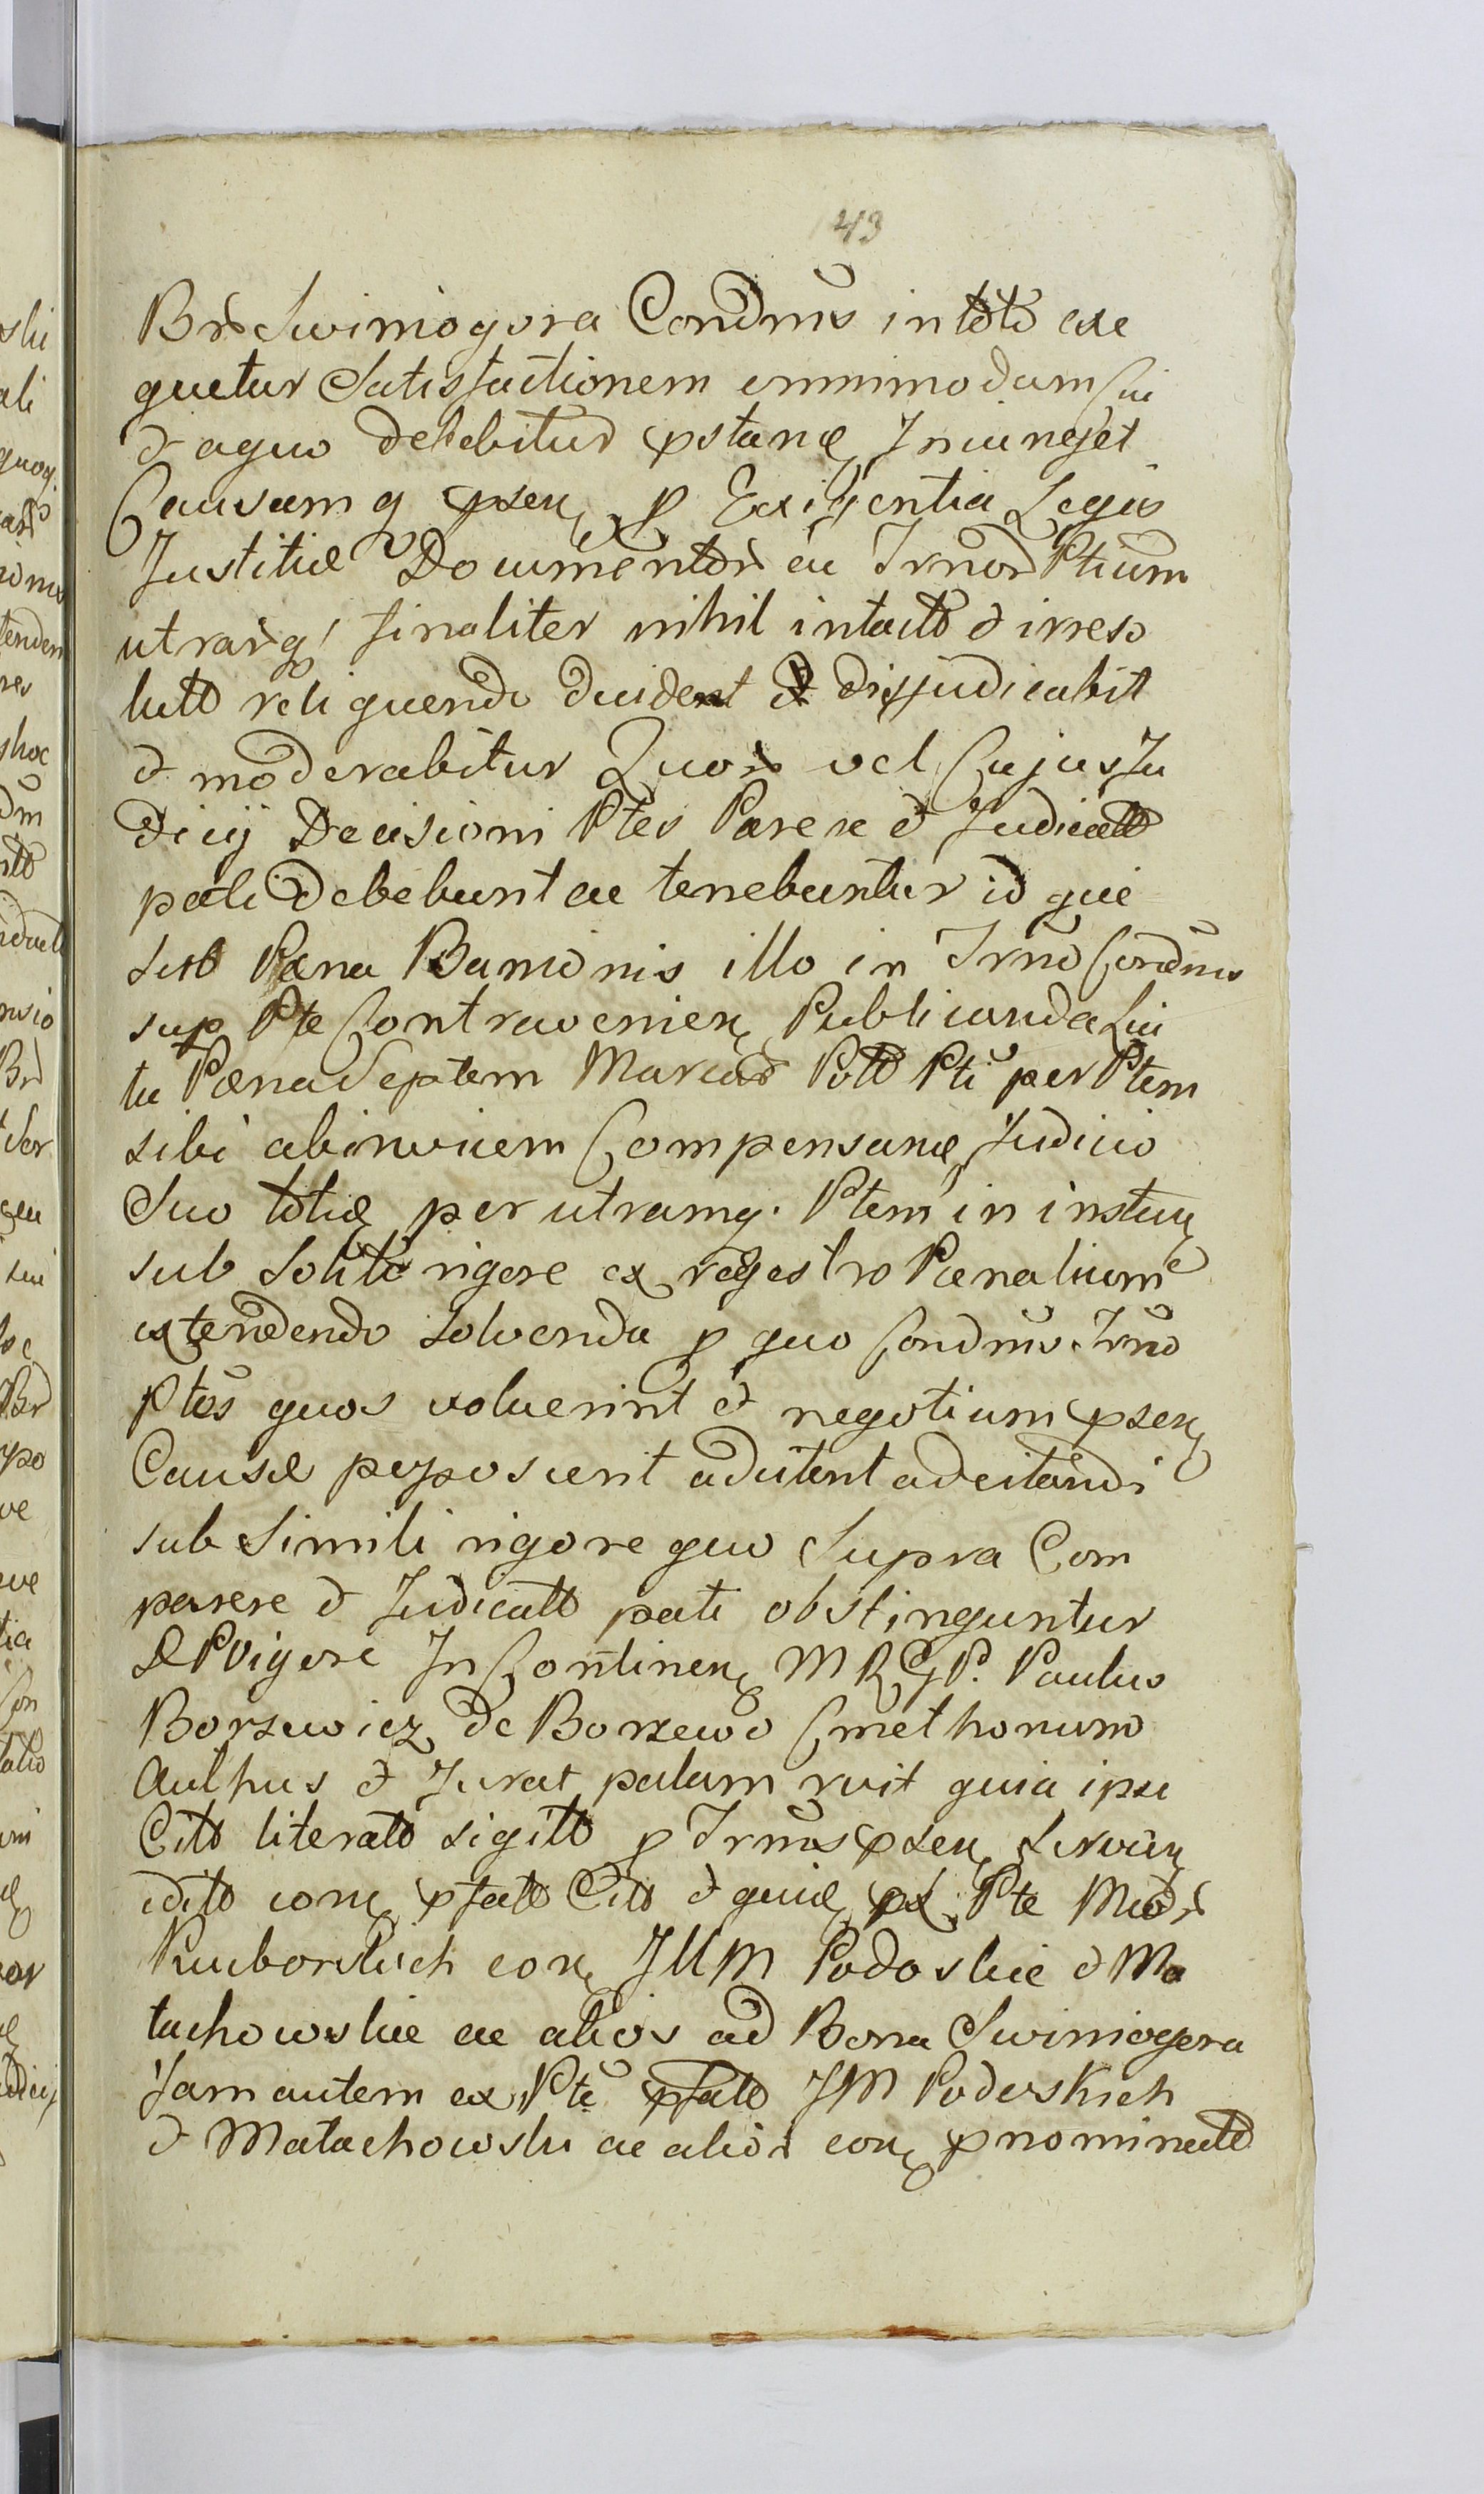 43
Brs Swiniogora Condnus in toto exe
quetur Satisfactionem omnimodam Cui
& a quo debebitur pstane Iniunget
Causamq psen p Exigentia Legis
Justitiæ Documentors ac Trnor Ptium
utrarsq finaliter nihil intacto & irreso
luto relinquendo decident & disjudicabit
& moderabitur Quors vel Cujus Ju
dicij Decisioni Ptes Parere & Judicatto
pati debebunt ac tenebuntur id que
sub Pæna Bannionis illo in Trno Condnus
sup Pte Contravenien Publicanda Lui
ta Pæna Septem Marcar Poll Pti per Ptem
sibi abinvicem Compensanæ Judicio
Suo toties per utramq. Ptem in instan
sub Solito rigore ex regestro Pænalium
extendendo solvenda p quo Condnus Trno
Ptes quos voluerint & negotium psen
Causæ peposcerit adcitent adcitandi
sub Simili rigore quo Supra Com
parere & Judicatto pati obstinguntur
DP Vigore In Continen MRGP. Paulus
Borzewicz de Borzewo Cmethonum
Aulhus & Jurat palam rvit quia ipse
Citt literatt sigitt p Trnus psen servien
editt con pfatt Citt & quiæ ex Pte Mcdrs
Ruiborskich con JUM Podoskie & Ma
tachowskie ac alios ad Bona Swiniogora
Jam autem ex Pte pfatt JM Podoskich
& Matachowski ac alios con pnominatt